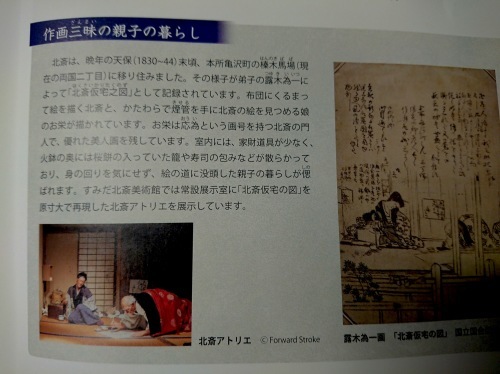 作画三昧の親子の暮らし
北斎は、晩年の天保(1830~44)末頃、本所亀沢町の榛木馬場(現
在の両国二丁目)に移り住みました。その様子が弟子の露木為一に
よって「北斎仮宅之図」として記録されています。布団にくるまっ
て絵を描く北斎と、かたわらで煙管を手に北斎の絵を見つめる娘
のお栄が描かれています。お栄は応為という画号を持つ北斎の門
人で、優れた美人画を残しています。室内には、家財道具が少なく、
火鉢の奥には桜餅の入っていた籠や寿司の包みなどが散らかって
おり、身の回りを気にせず、絵の道に没頭した親子の暮らしが偲
ばれます。すみだ北斎美術館では常設展示室に「北斎仮宅の図」を
原寸大で再現した北斎アトリエを展示しています。
北斎アトリエ © Forward Stroke
露木為一画 「北斎仮宅の図」 国立国会